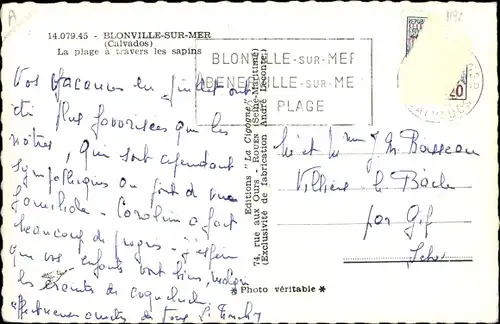 14.079.45 - BLONVILLE-SUR-MER
(Calvados)
La plage à travers les sapins
BLONVILLE-SUR-MER
BENERVILLE-SUR-ME
PLAGE
20
CALVADOS
Vos vacances en juillet ont
été plus favorisées que les
nôtres, qui sont cependant
sympathiques au point de vue
familiale. Caroline a fait
beaucoup de progrès. J'espère
que vos enfants vont bien, malgré
les craintes de coqueluche.
affectueuses amitiés de tous
Editions "La Cigogne"
74, rue aux Ours - ROUEN (Seine-Maritime)
(Exclusivité de fabrication André Leconte)
Mr et Mme J. M. Rousseau
Villiers le Bâcle
par Gif
S. et O.
* Photo véritable *